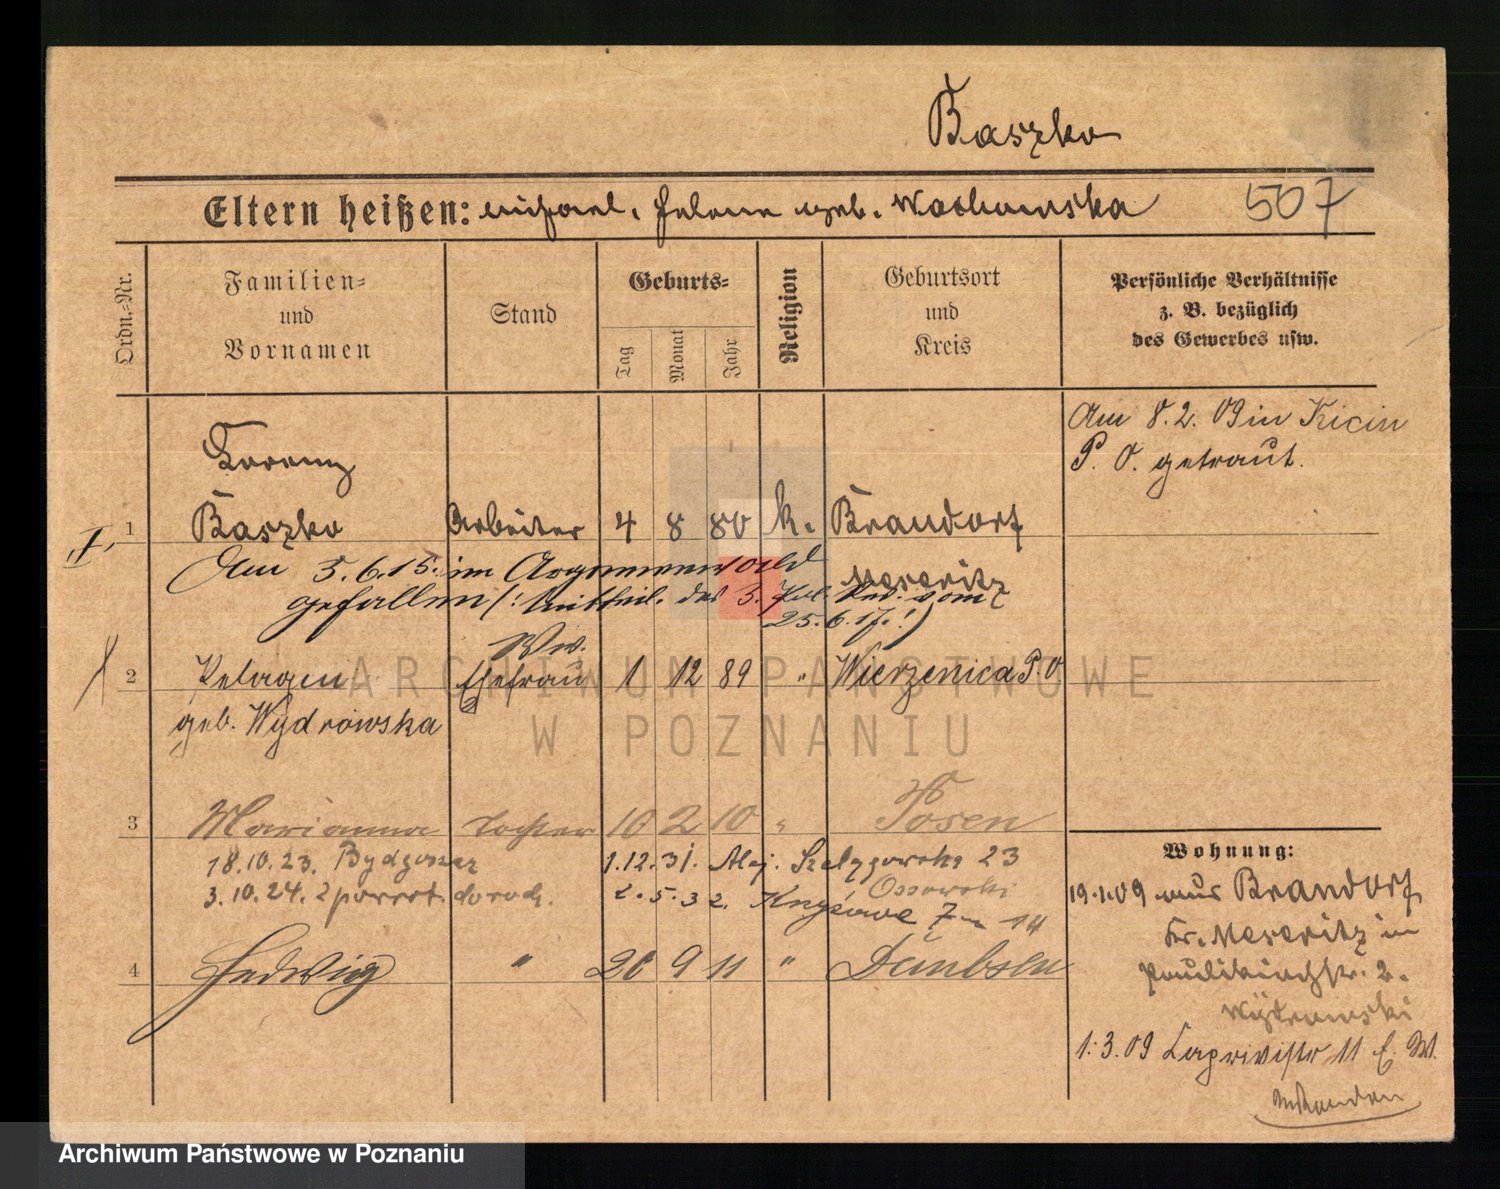 Baszko
Eltern heißen: Michael, Helene geb. Wachowska 507
Ordn.-Nr.
Familien-
und
Vornamen
Stand
Geburts-
Tag
Monat
Jahr
Religion
Geburtsort
und
Kreis
Persönliche Verhältnisse
z. B. bezüglich
des Gewerbes usw.
Am 8.2.09 in Kicin
P. O. getraut.
Lorenz
I.
1 Baszko Arbeiter 4 8 80 k. Brandorf
Meseritz
Am 5.6.15. im Argonnenwald
gefallen (: Mitteil. des 3. vom
25.6.17. !)
Ww.
2 Pelagia Ehefrau 1 12 89 " Wierzenica P. O
geb. Wydrowska
3 Marianna Tochter 10 2 10 " Posen
18.10.23. Bydgoszcz 1.12.31. Alej. Szelągowska 23
3.10.24. z powrot. do rodz. 2.5.32. 14
Ossowski
4 Hedwig " 20 9 11 "
Wohnung:
19.1.09 aus Brandorf
Kr. Meseritz in
Paulikirchstr. 2.
1.3.09 11 E. W.
ARCHIWUM PAŃSTWOWE
W POZNANIU
Archiwum Państwowe w Poznaniu